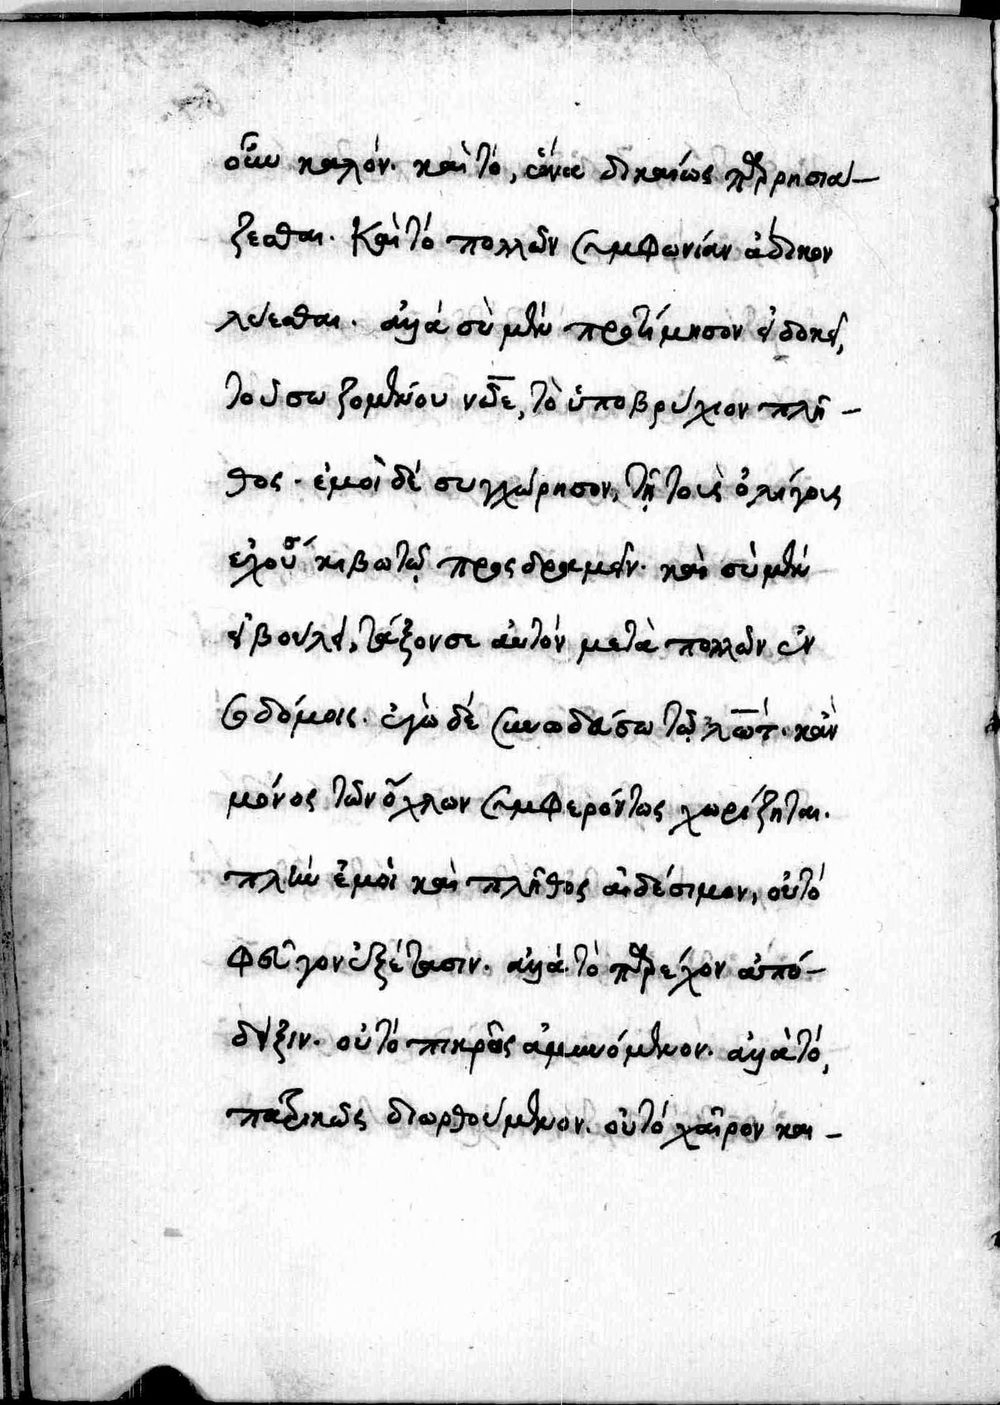 οὖν καλόν. καὶ τό, ἕνα δικαίως παρρησιά-
ζεσθαι. Καὶ τὸ πολλῶν συμφωνίαν ἄδικον
λύεσθαι. ἀλλὰ σὺ μὲν προτίμησον εἰ δοκεῖ,
τοῦ σωζομένου νῶε, τὸ ὑποβρύχιον πλῆ-
θος. ἐμοὶ δὲ συγχώρησον, τῇ τοὺς ὀλίγους
ἐχούσῃ κιβωτῷ προσδραμεῖν. καὶ σὺ μὲν
εἰ βούλει, τάξον σεαυτὸν μετὰ πολλῶν ἐν
σοδόμοις. ἐγὼ δὲ συνοδεύσω τῷ λώτ. κἂν
μόνος τῶν ὄχλων συμφερόντως χωρίζηται.
πλὴν ἐμοὶ καὶ πλῆθος αἰδέσιμον, οὐ τὸ
φεῦγον ἐξέτασιν. ἀλλὰ τὸ παρέχον ἀπό-
δειξιν. οὐ τὸ πικρῶς ἀμυνόμενον. ἀλλὰ τό,
πατρικῶς διορθούμενον. οὐ τὸ χαῖρον και-